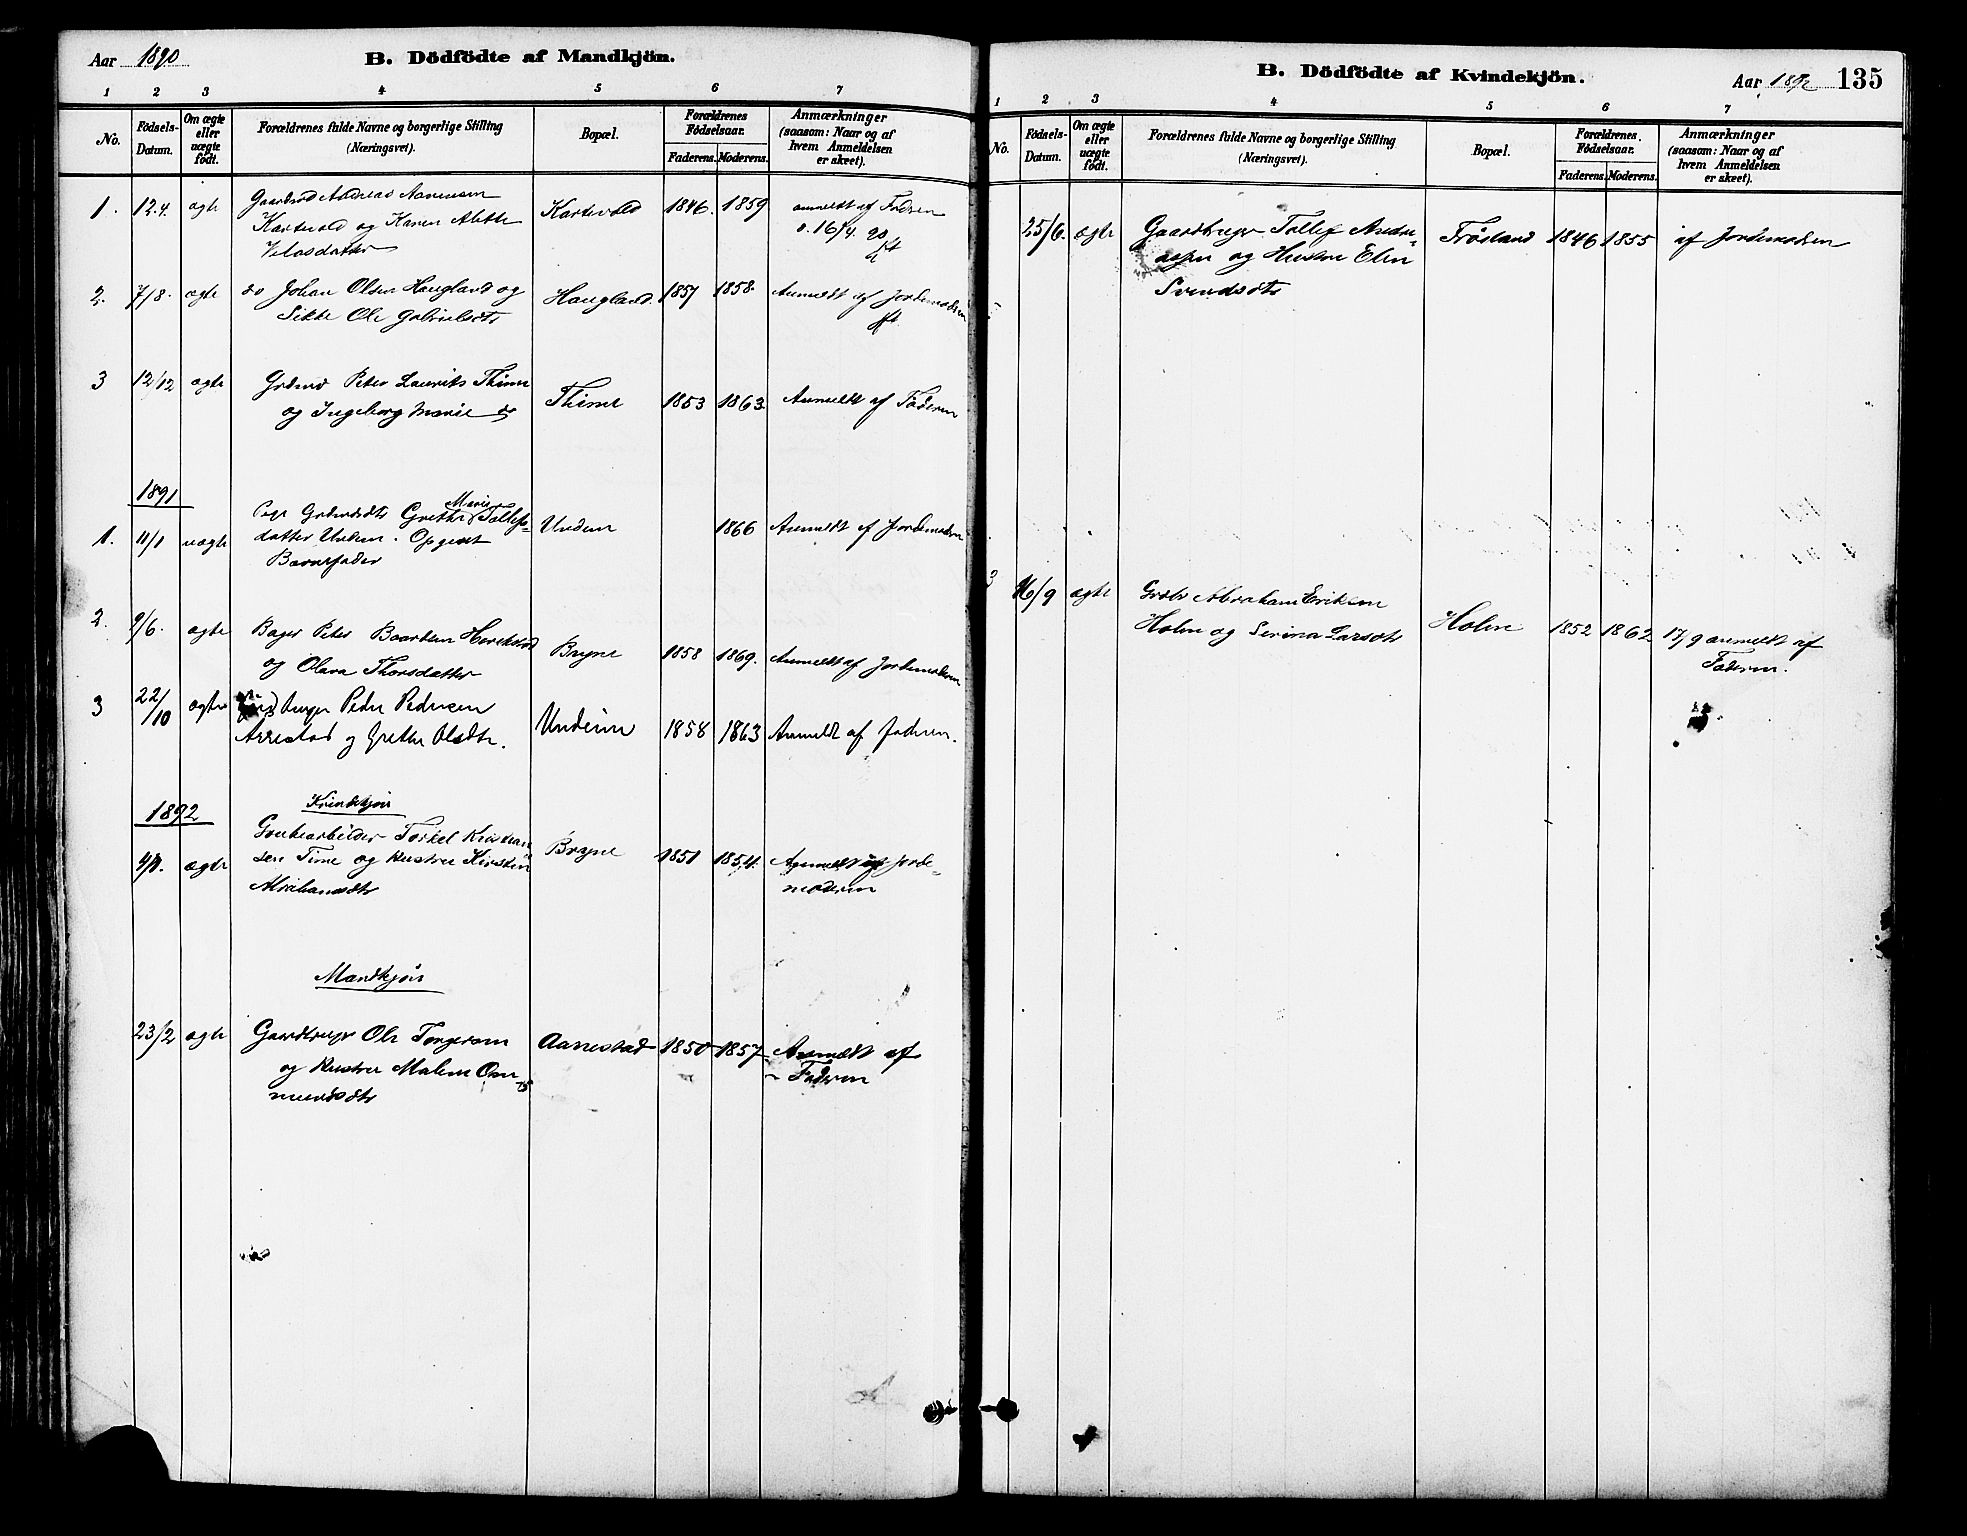 Aar 1890
B. Dödfödte af Mandkjön.
1 2 3 4 5 6 7
No.
Födsels-Datum.
Om ægte eller uægte födt.
Forældrenes fulde Navne og borgerlige Stilling (Næringsvei).
Bopæl.
Forældrenes Födselsaar.
Faderens. Moderens.
Anmærkninger (saasom: Naar og af hvem Anmeldelsen er skeet).
1. 12.4. ægte Andreas Aanensen Kartevold 1846. 1859 anmeldt af Fadren
og Karen Alette 16/4. 90
2. 7/8. ægte do Johan Olsen Haugland og Haugland. 1851 1858. Anmeldt af Jordemodren
Sikke Ole Gabrielsdtr
3 12/12 ægte Grdmd Peter Laurits Thime Thime 1853 1863. Anmeldt af Faderen
og Ingeborg Marie
1891
Marie
1. 11/1 uægte Pige Grethe Tollefs- Undem 1866 Anmeldt af Jordemodren
datter Undem. Opgivet
Barnefader
2. 9/6. ægte Bager Peter Baardsen Bryne 1858 1869. Anmeldt af Jordemoderen
og Olava Thorsdatter
3 22/10 ægte Peder Pedersen Undeim 1858 1863 Anmeldt af faderen.
Arrestad og Grethe Olsdtr.
1892
Kvindekjön
ægte Torkel Kristian- Bryne 1851 1854. Anmeldt af jorde-
sen Time og Hustru Kirsten moderen
Abrahamsdtr
Mandkjön
23/2 ægte Gaardbruger Ole Torgersen Aanestad 1850 1857 Anmeldt af
og Hustru Malene Os- Faderen
mundsdtr
B. Dödfödte af Kvindekjön.
Aar 1892 135
1 2 3 4 5 6 7
No.
Födsels-Datum.
Om ægte eller uægte födt.
Forældrenes fulde Navne og borgerlige Stilling (Næringsvei).
Bopæl.
Forældrenes Födselsaar.
Faderens. Moderens.
Anmærkninger (saasom: Naar og af hvem Anmeldelsen er skeet).
25/6. ægte Gaardbruger Tollef Andre- Fröiland 1846 1855 af Jordemodren
asen og Hustru Elen
Svendsdtr
3 16/9 ægte Grdbr Abraham Eriksen Holen 1852 1862 17/9 anmeldt af
Holen og Serina Larsdtr Faderen.